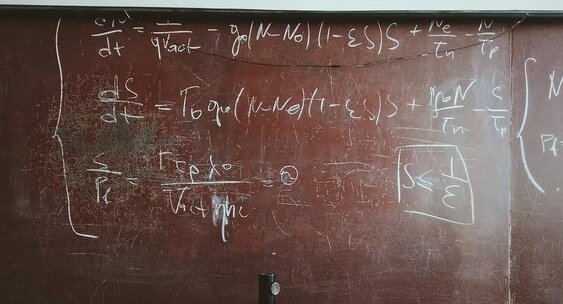 dN/dt = I/(qVact) - g₀(N-N₀)(1-ƐS)S + Ne/τn - N/τp
dS/dt = Γb g₀(N-N₀)(1-ƐS)S + Γβ₀N/τn - S/τp
S/Pf = Γτp λ₀/(Vact ηhc) = ϑ
S ≤ 1/Ɛ
N
Pf